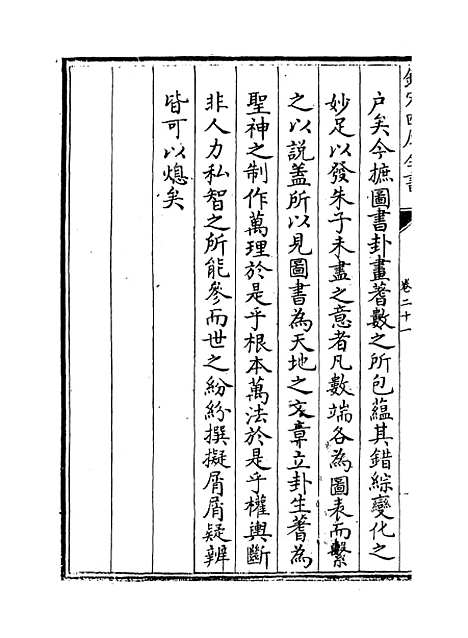 欽定四庫全書
卷二十一
户矣今摭圖書卦畫蓍數之所包藴其錯綜變化之
妙足以發朱子未盡之意者凡數端各為圖表而繫
之以説葢所以見圖書為天地之文章立卦生蓍為
聖神之制作萬理於是乎根本萬法於是乎權輿斷
非人力私智之所能參而世之紛紛撰擬屑屑疑辨
皆可以熄矣